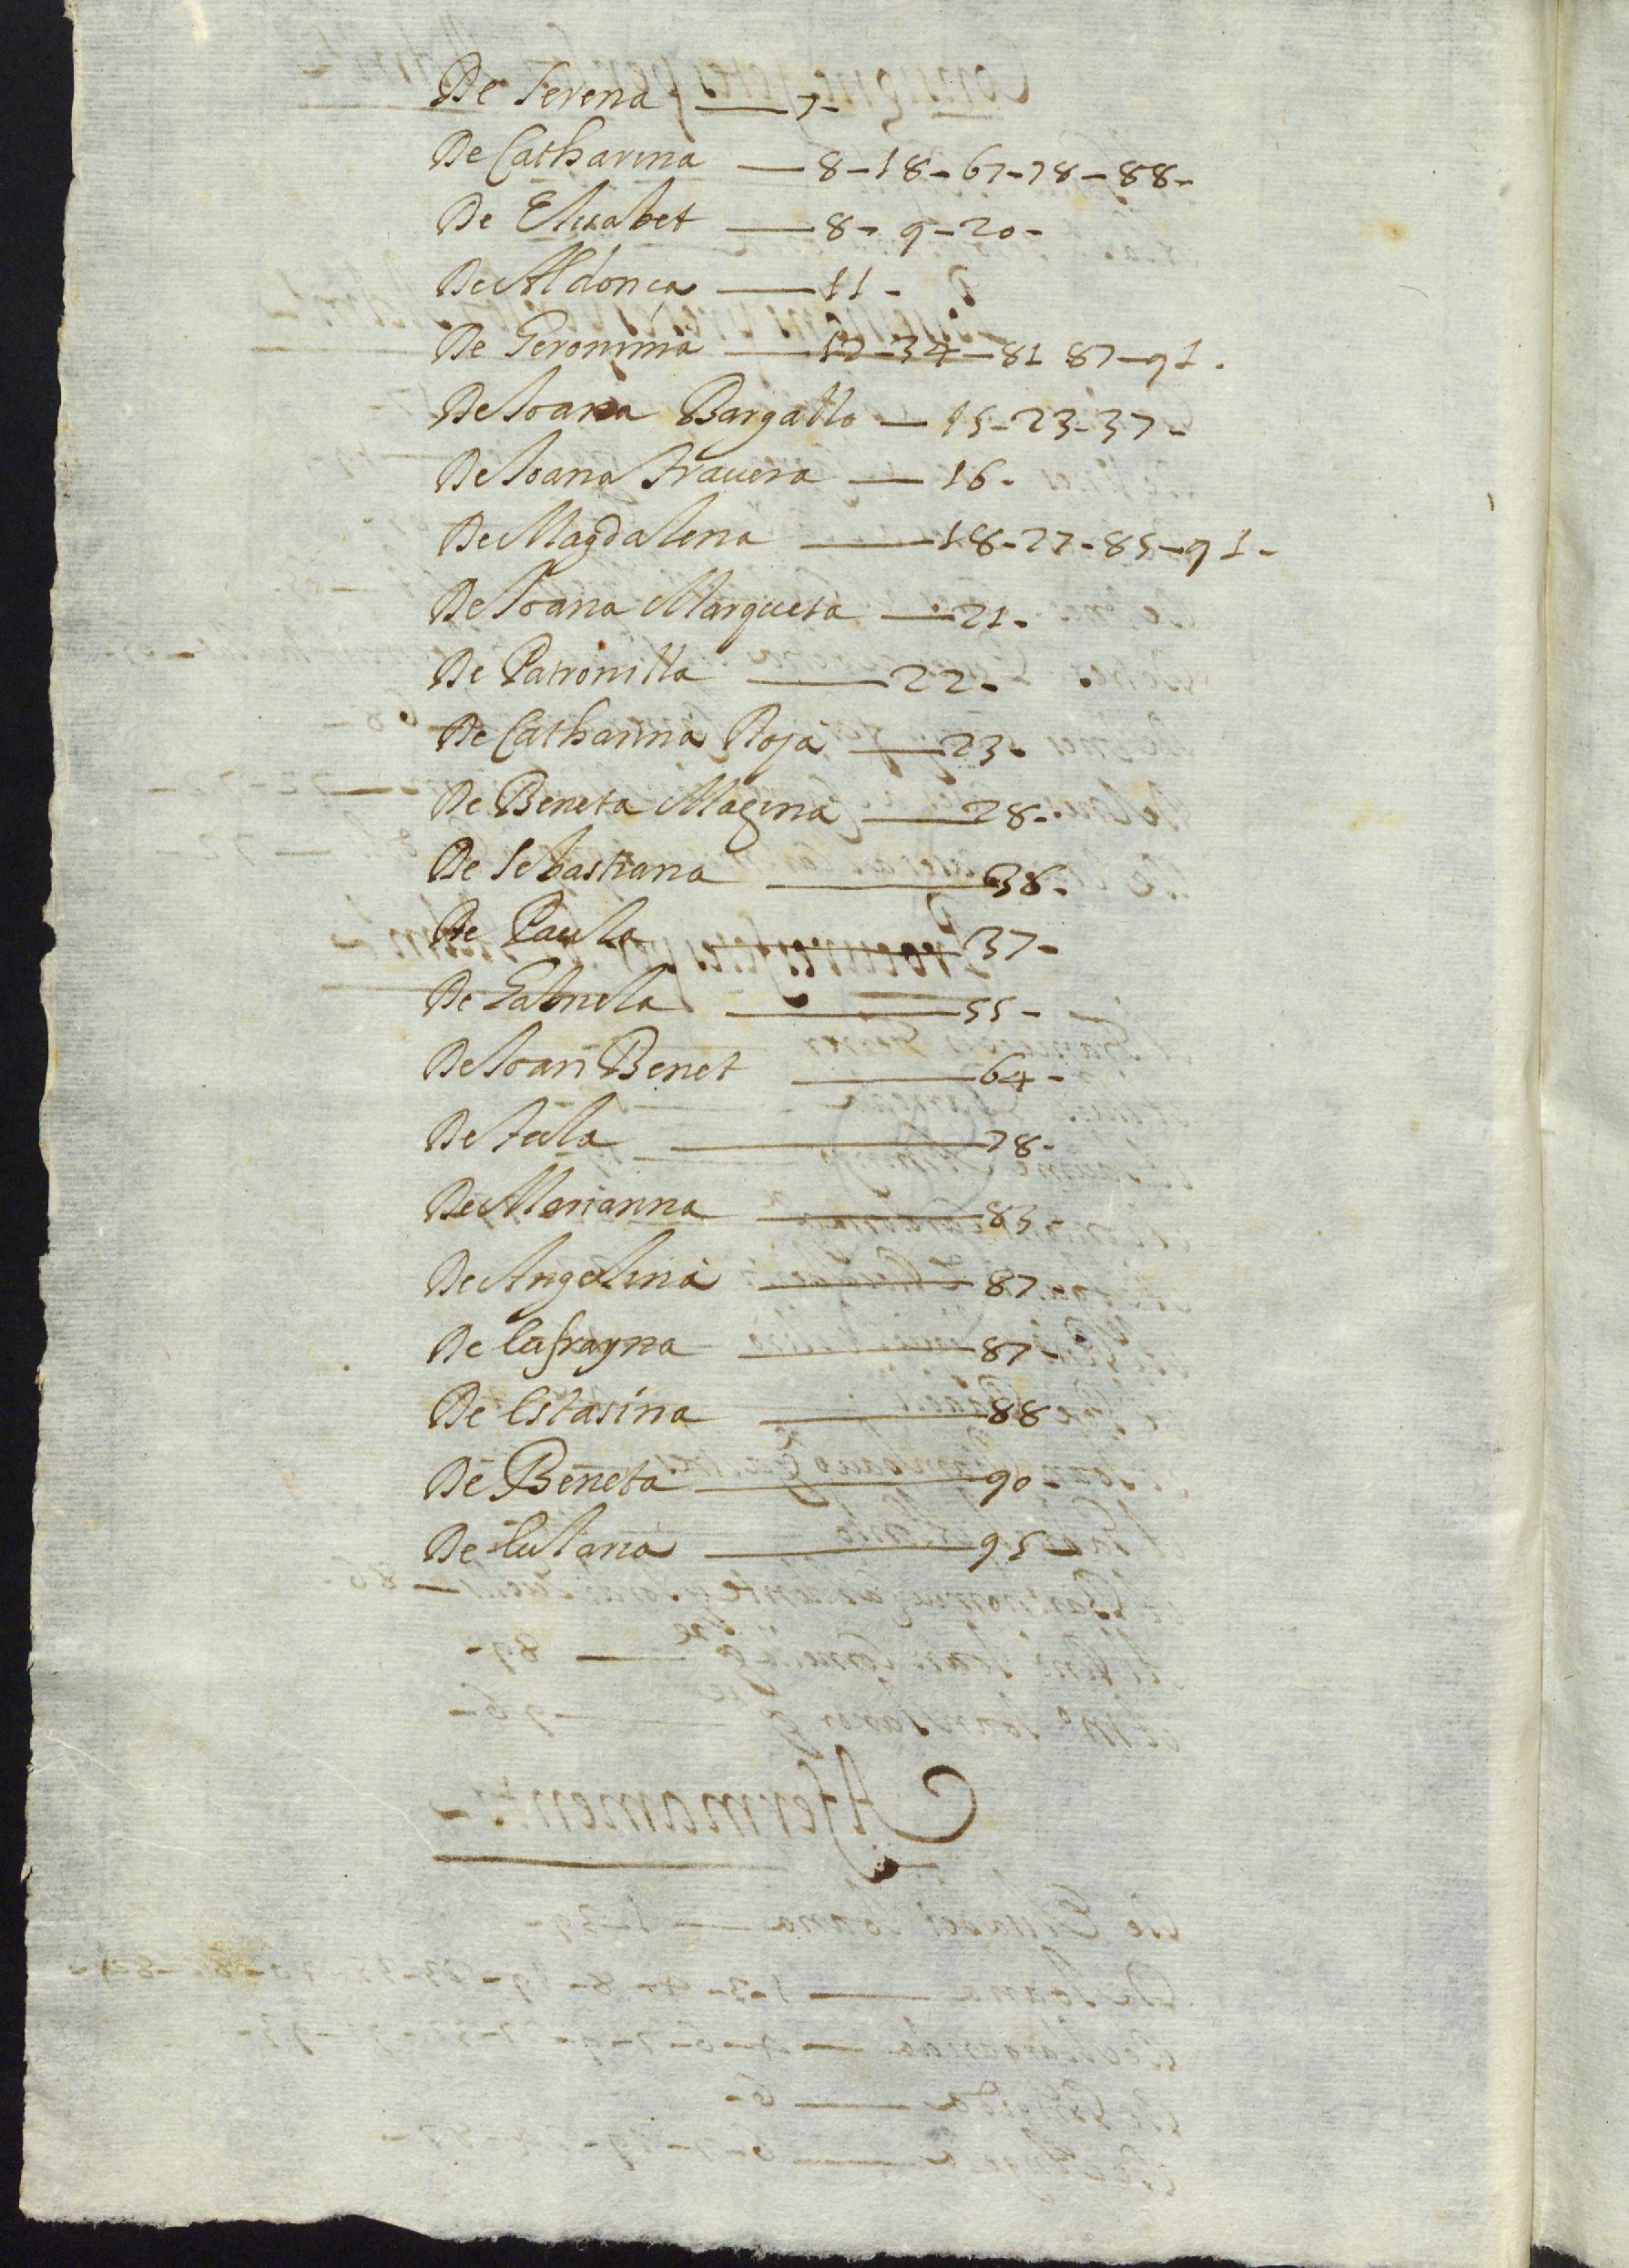 De Serena — 7 -
De Catharina — 8 - 18 - 67 - 78 - 88 -
De Elisabet — 8 - 9 - 20 -
De Aldonça — 11 -
De Geronima — 17 - 34 - 81 87 - 91 .
De Ioana Bargallo — 15 - 23 - 37 -
De Ioana Travera — 16 -
De Magdalena — 18 - 27 - 85 - 91 -
De Ioana Marqueta — 21 -
De Patronilla — 22 -
De Catharina Roja — 23 -
De Beneta Magina — 28 -
De Sebastiana — 38 -
De Paula — 37 -
De Gabriela — 55 -
De Ioan Benet — 64 -
De Tecla — 78 -
De Marianna — 83 -
De Angelina — 87 -
De Eufrayna — 87 -
De Estasina — 88 -
De Beneta — 90 -
De Eulana — 95 -